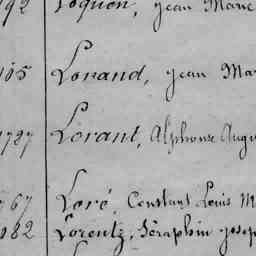 192 Loquen, Jean Marie
105 Lorand, Jean Mar
1727 Lorant, Alphonse Augu
767 Loré, Constant Louis M
082 Lorentz, Séraphin Josep